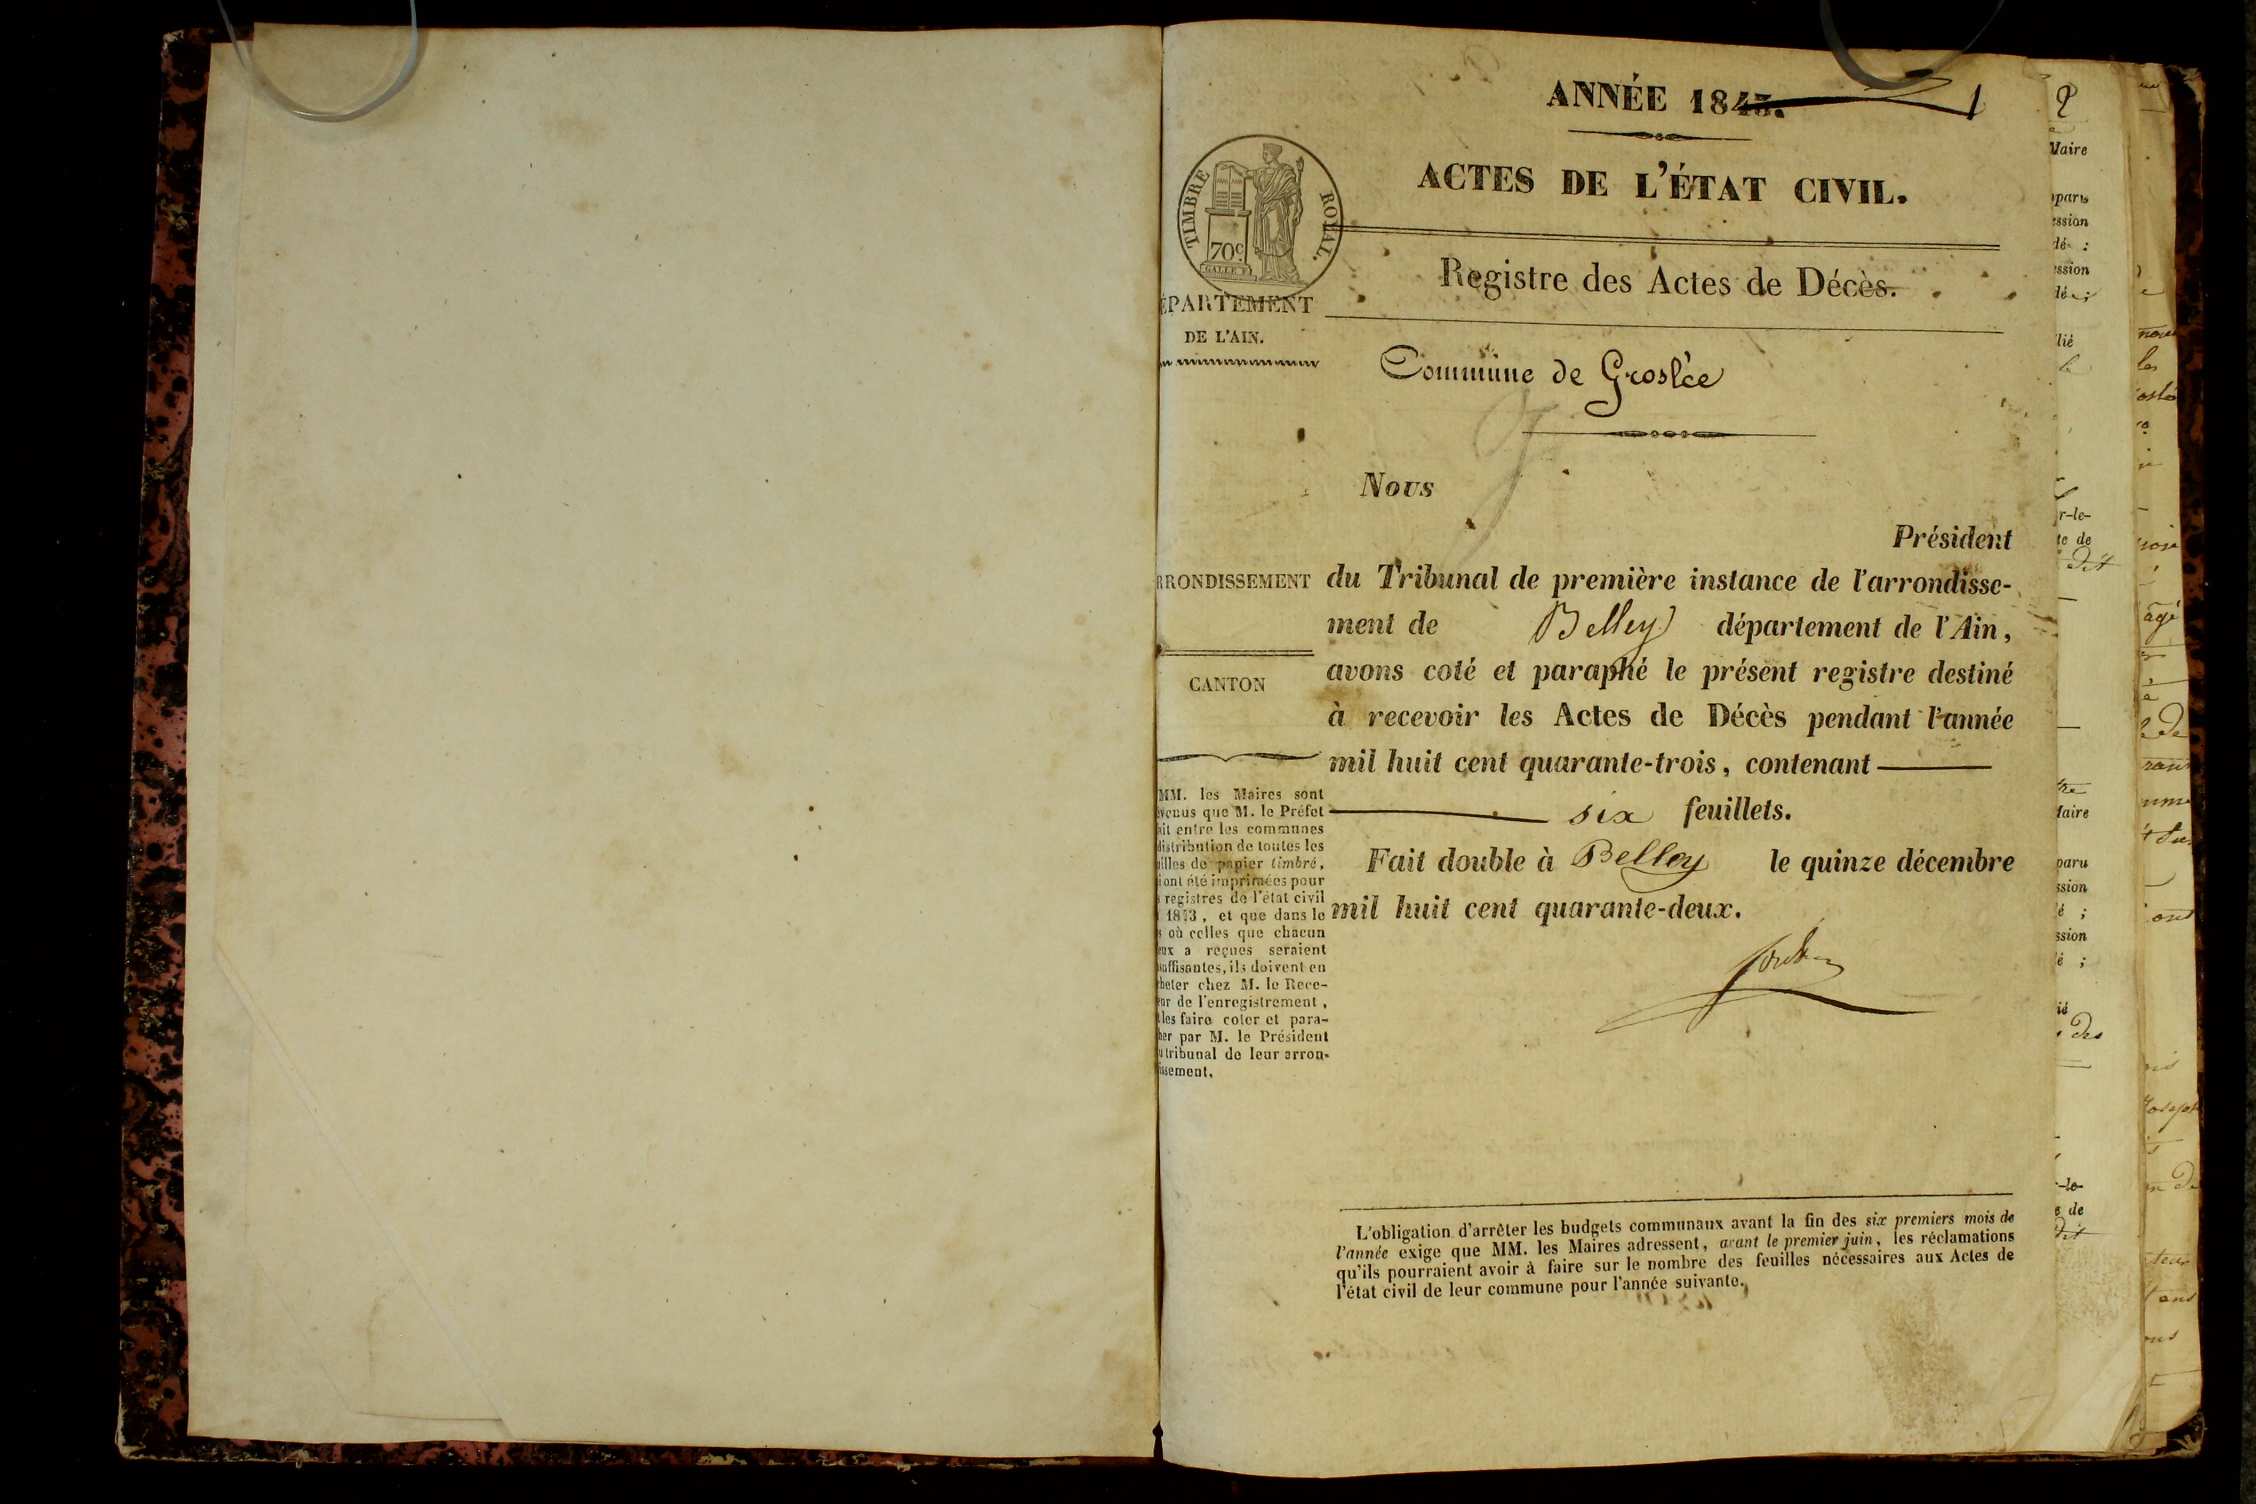 ANNÉE 1843.
1
ACTES DE L'ÉTAT CIVIL.
TIMBRE ROYAL.
70c
GALLE F.
Registre des Actes de Décès.
ÉPARTEMENT
DE L'AIN.
Commune de Groslée
Nous
Président
RRONDISSEMENT
du Tribunal de première instance de l'arrondisse-
ment de Belley département de l'Ain,
avons coté et paraphé le présent registre destiné
CANTON
à recevoir les Actes de Décès pendant l'année
mil huit cent quarante-trois, contenant
six feuillets.
Fait double à Belley le quinze décembre
mil huit cent quarante-deux.
MM. les Maires sont
evenus que M. le Préfet
ait entre les communes
distribution de toutes les
uilles de papier timbré,
i ont été imprimées pour
s registres de l'état civil
1843, et que dans le
s où celles que chacun
eux a reçues seraient
suffisantes, ils doivent en
cheter chez M. le Rece-
eur de l'enregistrement,
t les faire coter et para-
her par M. le Président
u tribunal de leur arron-
issement.
L'obligation d'arrêter les budgets communaux avant la fin des six premiers mois de
l'année exige que MM. les Maires adressent, avant le premier juin, les réclamations
qu'ils pourraient avoir à faire sur le nombre des feuilles nécessaires aux Actes de
l'état civil de leur commune pour l'année suivante.
2
Maire
pparu
ession
dé ;
ession
dé ;
lié
r-le-
te de
dit
Maire
paru
ssion
é ;
ssion
é ;
ié
des
-le-
e de
dit